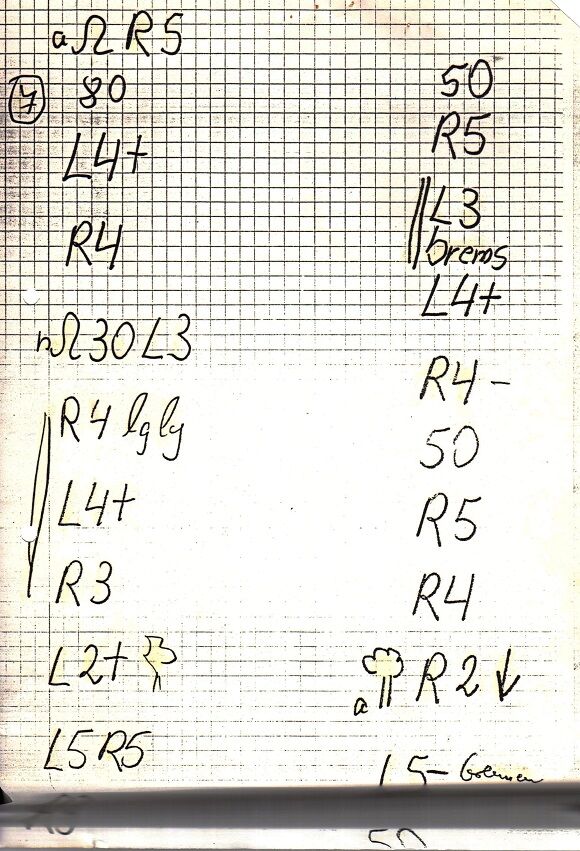 aΩ R5
7
80
L4+
R4
nΩ30 L3
R4 lg lg
L4+
R3
L2+
L5 R5
50
R5
L3
brems
L4+
R4-
50
R5
R4
a R2↓
L5-
50